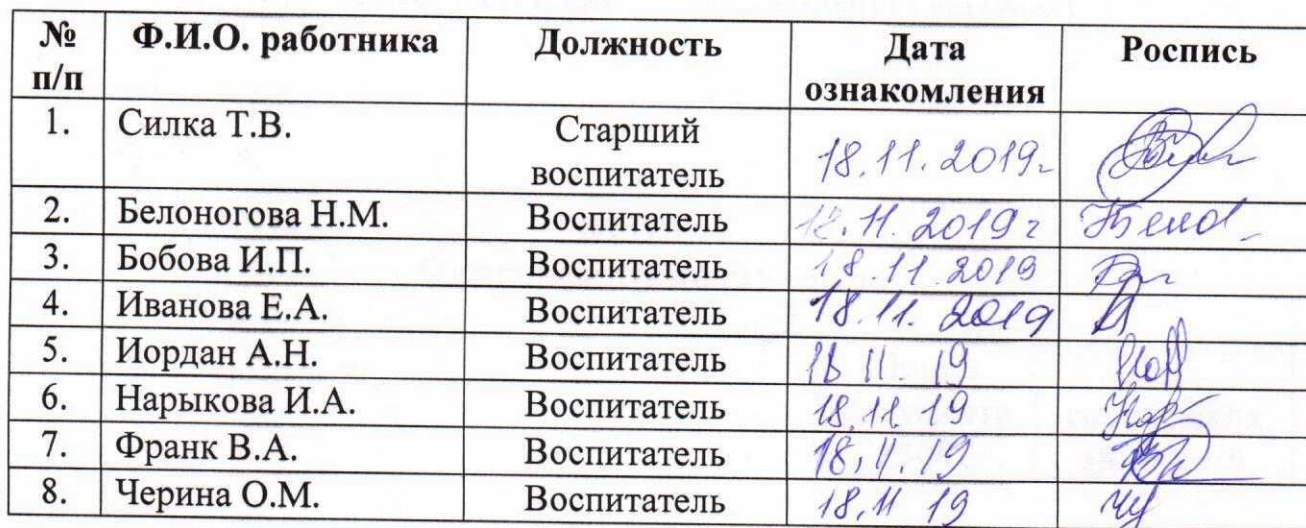 № п/п Ф.И.О. работника Должность Дата ознакомления Роспись
1. Силка Т.В. Старший воспитатель 18.11.2019г
2. Белоногова Н.М. Воспитатель 18.11.2019г
3. Бобова И.П. Воспитатель 18.11.2019
4. Иванова Е.А. Воспитатель 18.11.2019
5. Иордан А.Н. Воспитатель 18 11. 19
6. Нарыкова И.А. Воспитатель 18.11.19
7. Франк В.А. Воспитатель 18.11.19
8. Черина О.М. Воспитатель 18.11 19